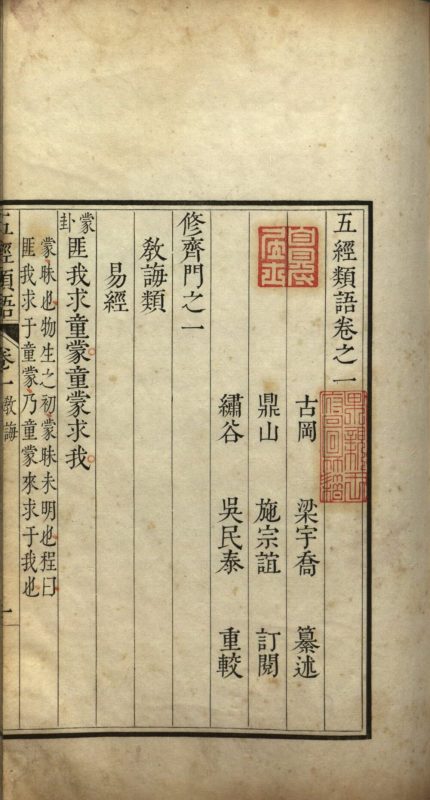 五經類語卷之一
古岡　梁宇喬　纂述
鼎山　施宗誼　訂閱
繡谷　吳民泰　重較
修齊門之一
敎誨類
易經
蒙卦 匪我求童蒙童蒙求我
蒙昧也物生之初蒙昧未明也程曰
匪我求于童蒙乃童蒙來求于我也
五經類語 卷一 敎誨 一